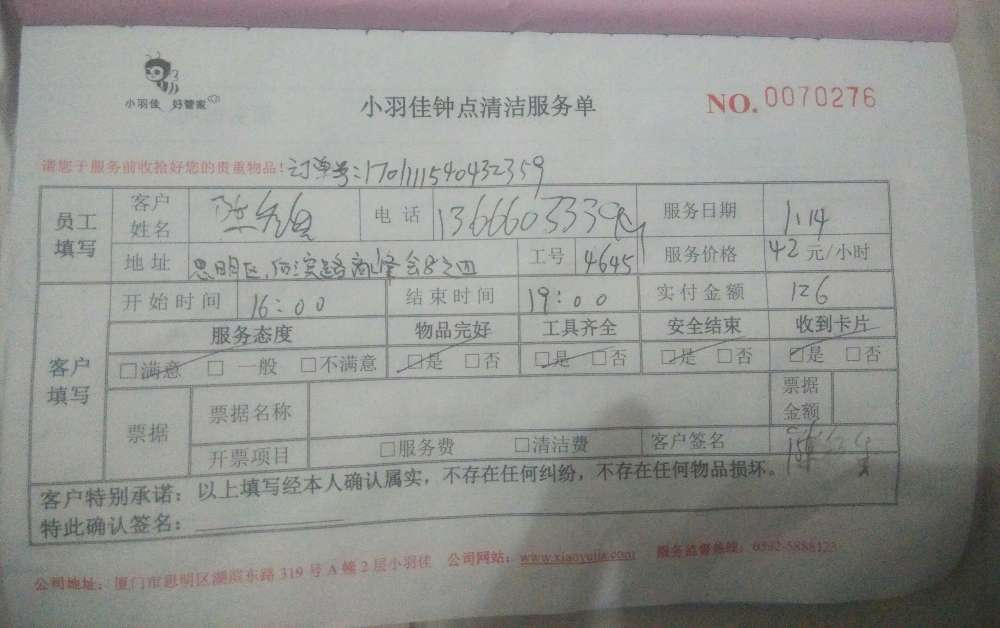 小羽佳 好管家
小羽佳钟点清洁服务单
NO.0070276
请您于服务前收拾好您的贵重物品!订单号:170111540432359
员工填写 客户姓名 电话 服务日期 1.14
地址 思明区 工号 4645 服务价格 42元/小时
客户填写 开始时间 16:00 结束时间 19:00 实付金额 126
服务态度 物品完好 工具齐全 安全结束 收到卡片
□满意 □一般 □不满意 □是 □否 □是 □否 □是 □否 □是 □否
票据 票据名称 票据金额
开票项目 □服务费 □清洁费 客户签名
客户特别承诺:以上填写经本人确认属实,不存在任何纠纷,不存在任何物品损坏。
特此确认签名:
公司地址:厦门市思明区湖滨东路319号A幢2层小羽佳 公司网站:www.xiaoyujia.com 服务监督热线:0592-5888123